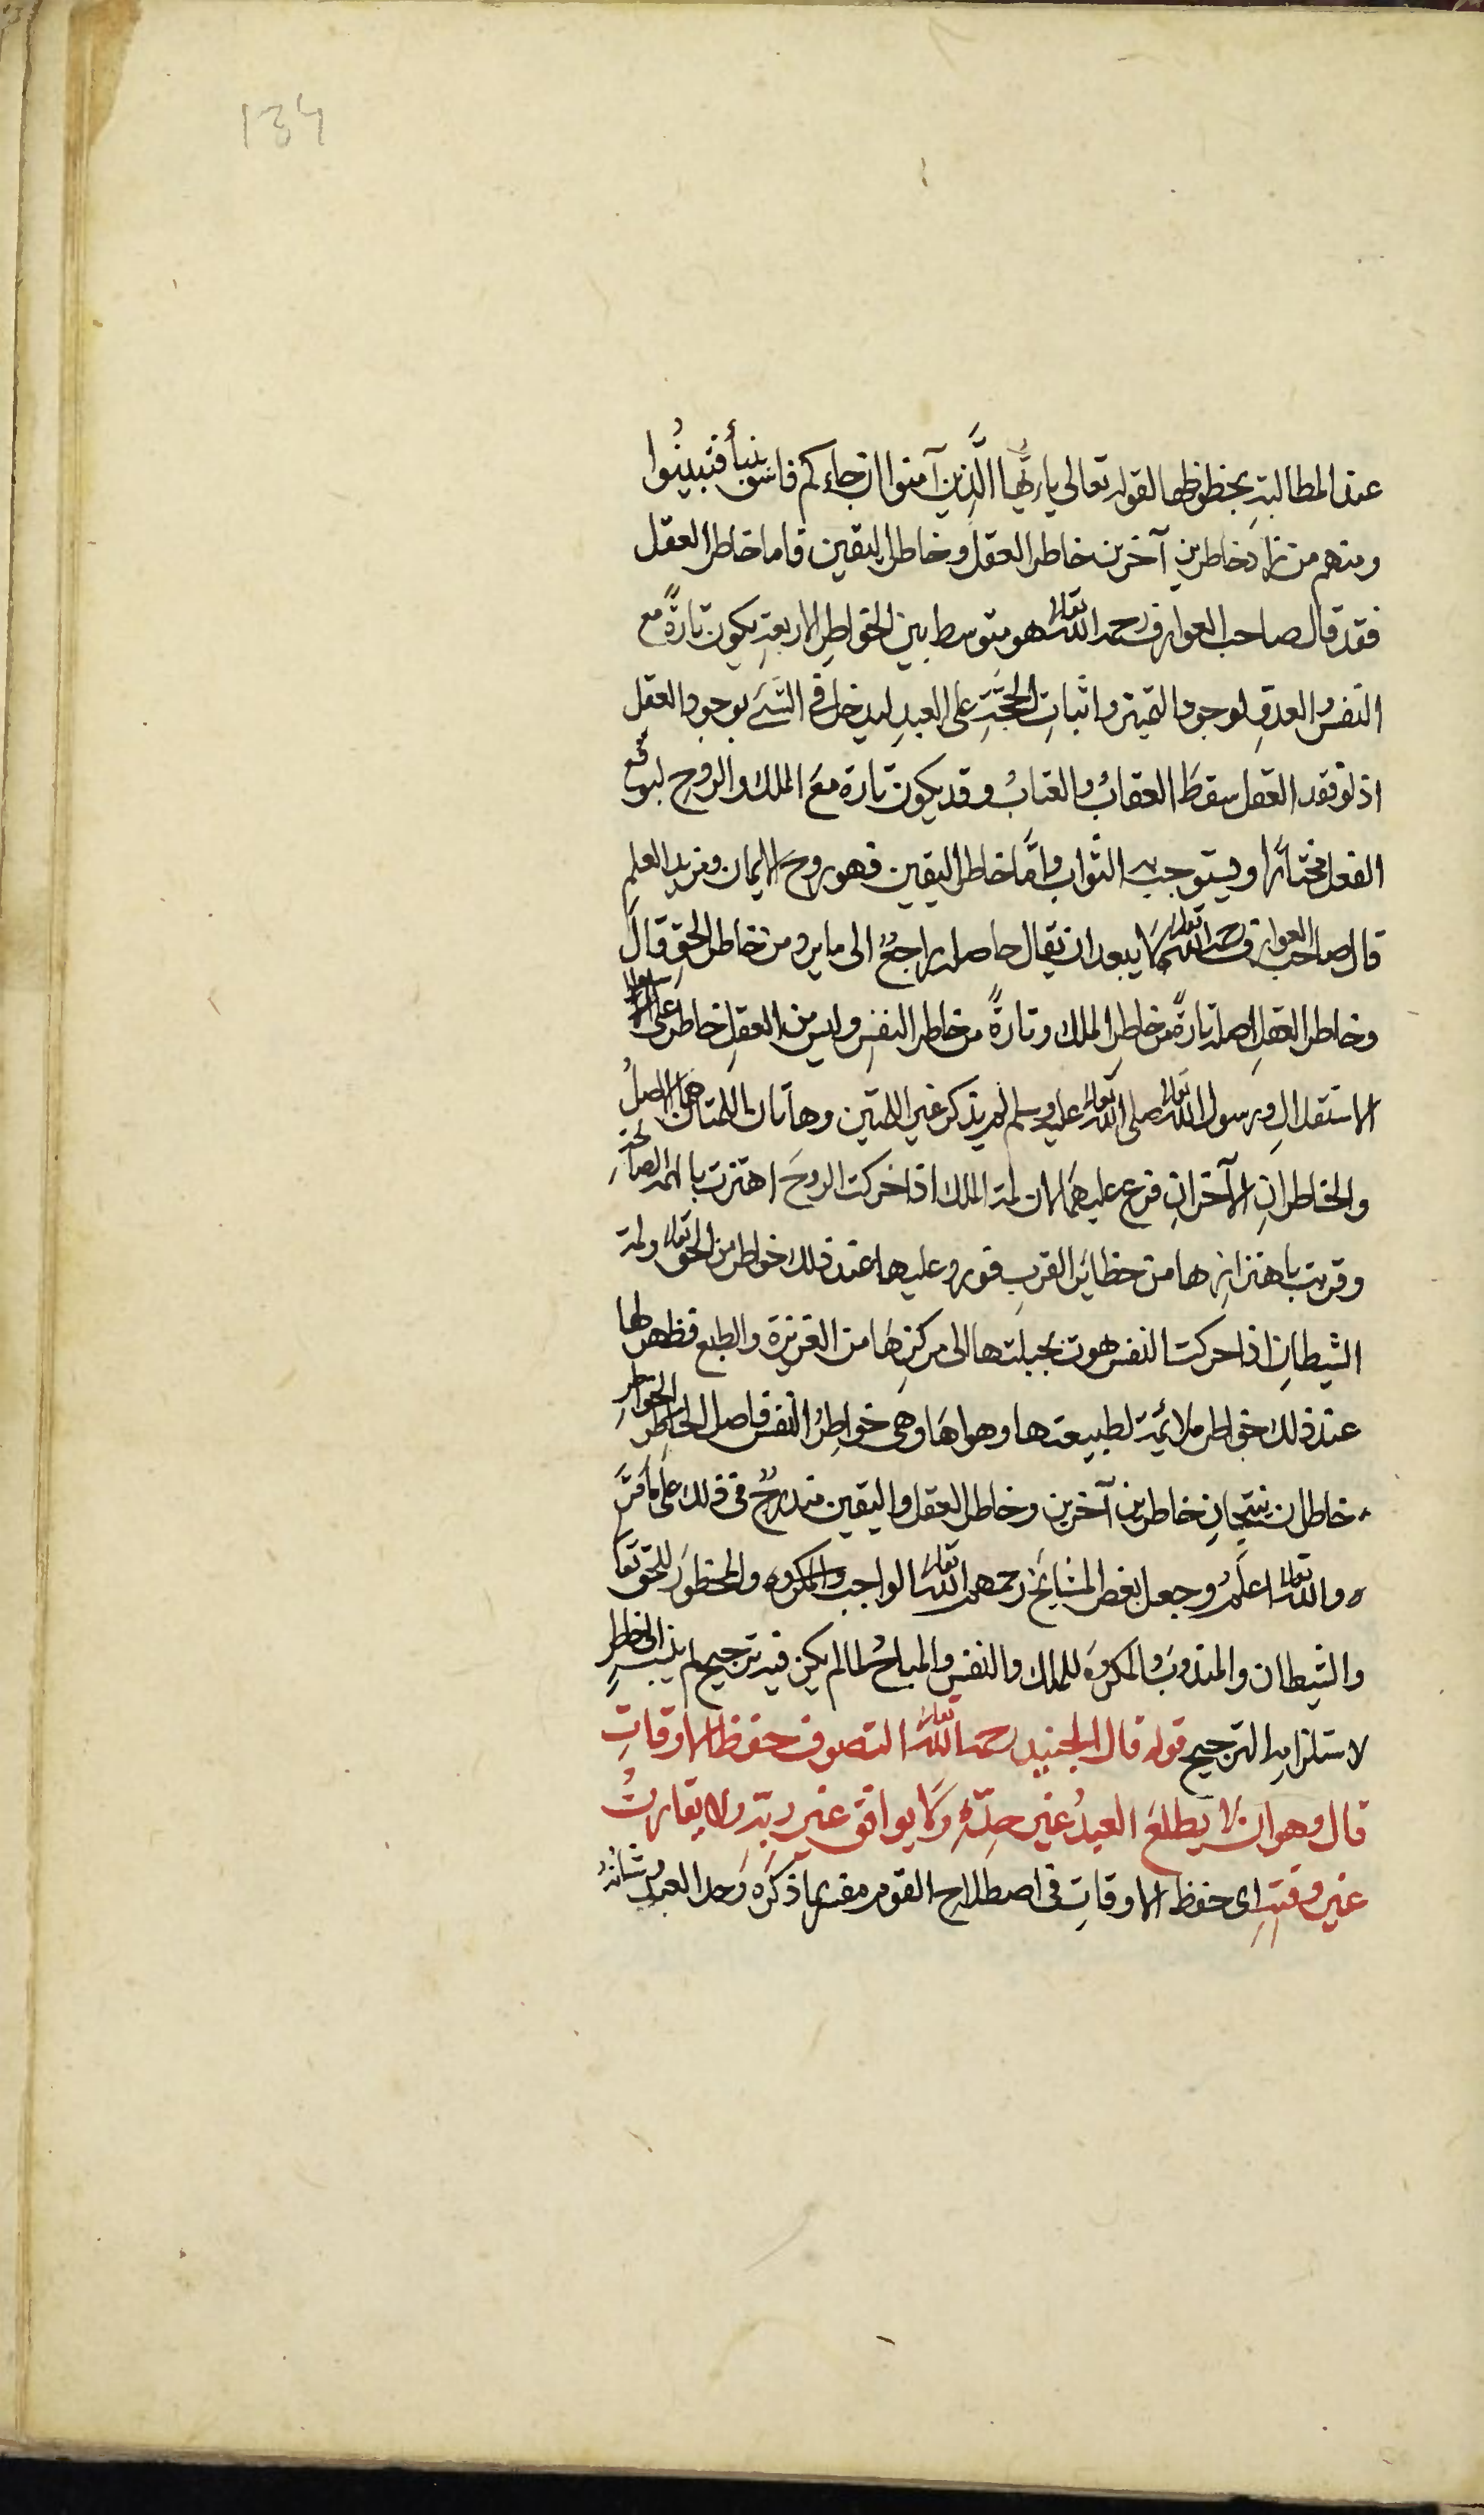 134
عند المطالبةِ بحظوظها لقوله تعالى ياءيُّها الَّذِين آمنوا ان جاءكم فاسق بنبأ فتبينُوا
ومنهم من زاد خاطرينِ آخرين خاطر العقل وخاطر اليقين فاما خاطر العقل
فقد قال صاحب العوارف رحمه الله تعالى هو متوسط بين الخواطرِ الاربعةِ يكون تارةً مع
النفس والعدوِ لوجود التميز واثباتِ الحجَّةِ على العبدِ ليدخل في الشئ بوجود العقل
اذ لو فقد العقل سقطَ العقابُ والعتابُ وقد يكون تارة مع الملك والروحِ ليوقع
الفعل مختارًا ويستوجب به الثواب وامَّا خاطر اليقين فهو روح الايمان ومزيد العلمِ
قال صاحب العوارف رحمه الله تعالى لا يبعد ان يقال حاصله راجعٌ الى ما يرد من خاطر الحقِ قال
وخاطر العقلِ اصله تارةً من خاطرِ الملك وتارةً من خاطر النفسِ وليس من العقلِ خاطر على
الاستقلالِ ورسول الله تعالى صلى الله تعالى عليه وسلم لم يذكر غير اللمتين وهاتان اللمتان هما الاصلُ
والخاطرانِ الآخرانِ فرع عليهما لان لمة الملك اذا حركت الروحَ اهتزت بالهمة الصالحةِ
وقربت باهتزازها من حظائر القربِ فورد عليها عند ذلك خواطر من الحق تعالى ولمة
الشيطانِ اذا حركت النفس هوت بجبلتها الى مركزِها من الغريزة والطبع فظهر لها
عند ذلك خواطر ملائمة لطبيعتها وهواهَا وهى خواطرُ النفس فاصل الخواطرِ
خاطران ينتجانِ خاطرين آخرين وخاطر العقل واليقين مندرجٌ فى ذلك على ما مَرَّ
والله تعالى اعلمُ وجعل بعض المشايخ رحمهم الله تعالى الواجب والمكروه والمحظورَ للحق تعا
والشيطان والمندوبَ والمكروهَ للملك والنفس والمباحُ لما لم يكن فيه ترجيح لم ينسب الى خاطرٍ
لاستلزامه الترجيح قوله قال الجنيد رحمه الله تعالى التصوف حفظ الاوقاتِ
قال وهو ان لا يطلعَ العبدُ غير حدِّهِ وَلا يوافق غير ربِّهِ ولا يقارنُ
غير وقتهِ اى حفظ الاوقاتِ فى اصطلاح القوم مفسر بما ذكره وحد العبد وشانهُ